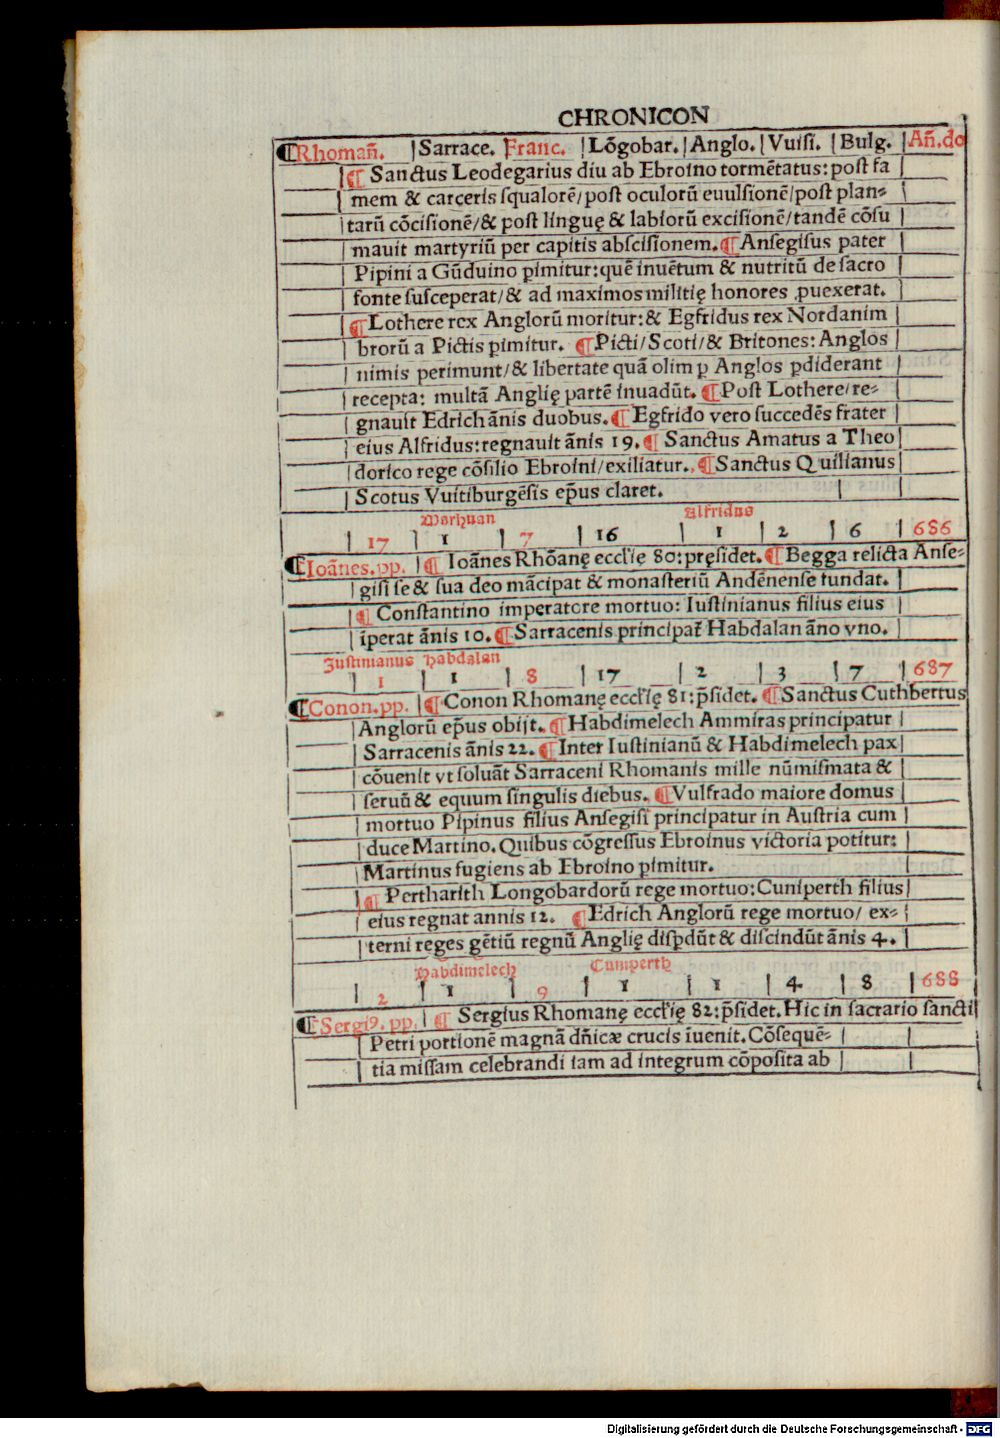 CHRONICON
¶Rhomañ. |Sarrace. Franc. |Lõgobar. |Anglo. |Vuisi. |Bulg. |Añ.do
¶ Sanctus Leodegarius diu ab Ebroino tormẽtatus: post fa
mem & carceris squalorẽ/post oculorũ euulsionẽ/post plan⸗
tarũ cõcisionẽ/& post linguę & labiorũ excisionẽ/tandẽ cõsu
mauit martyriũ per capitis abscisionem. ¶Ansegisus pater
Pipini a Gũduino pimitur: quẽ inuẽtum & nutritũ de sacro
fonte susceperat/& ad maximos militię honores ꝓuexerat.
¶Lothere rex Anglorũ moritur: & Egfridus rex Nordanim
brorũ a Pictis pimitur. ¶Picti/Scoti/& Britones: Anglos
nimis perimunt/& libertate quã olim p Anglos pdiderant
recepta: multã Anglię partẽ inuadũt. ¶Post Lothere/re⸗
gnauit Edrich ãnis duobus. ¶Egfrido vero succedẽs frater
eius Alfridus: regnauit ãnis 19. ¶ Sanctus Amatus a Theo
dorico rege cõsilio Ebroini/exiliatur. ¶Sanctus Quilianus
Scotus Vuitiburgẽsis ep̃us claret.
Morhuan Alfridus
| 17 | 1 | 7 | 16 | 1 | 2 | 6 | 686
¶Ioãnes.pp. | ¶ Ioãnes Rhõanę eccľię 80: pręsidet. ¶Begga relicta Anse⸗
gisi se & sua deo mãcipat & monasteriũ Andẽnense fundat.
¶ Constantino imperatore mortuo: Iustinianus filius eius
ĩperat ãnis 10. ¶Sarracenis principat̃ Habdalan ãno vno.
Iustinianus Habdalan
| 1 | 1 | 8 | 17 | 2 | 3 | 7 | 687
¶Conon.pp. | ¶Conon Rhomanę eccľię 81: p̃sidet. ¶Sanctus Cuthbertus
Anglorũ ep̃us obijt. ¶Habdimelech Ammiras principatur
Sarracenis ãnis 22. ¶Inter Iustinianũ & Habdimelech pax
cõuenit vt soluãt Sarraceni Rhomanis mille nũmismata &
seruũ & equum singulis diebus. ¶Vulfrado maiore domus
mortuo Pipinus filius Ansegisi principatur in Austria cum
duce Martino. Quibus cõgressus Ebroinus victoria potitur:
Martinus fugiens ab Ebroino pimitur.
¶ Pertharith Longobardorũ rege mortuo: Cuniperth filius
eius regnat annis 12. ¶Edrich Anglorũ rege mortuo/ ex⸗
terni reges gẽtiũ regnũ Anglię dispdũt & discindũt ãnis 4.
Habdimelech Cuniperth
| 2 | 1 | 9 | 1 | 1 | 4 | 8 | 688
¶Sergiꝰ.pp. | ¶ Sergius Rhomanę eccľię 82: p̃sidet. Hic in sacrario sancti
Petri portionẽ magnã dñicæ crucis ĩuenit. Cõsequẽ⸗
tia missam celebrandi iam ad integrum cõposita ab
Digitalisierung gefördert durch die Deutsche Forschungsgemeinschaft - DFG